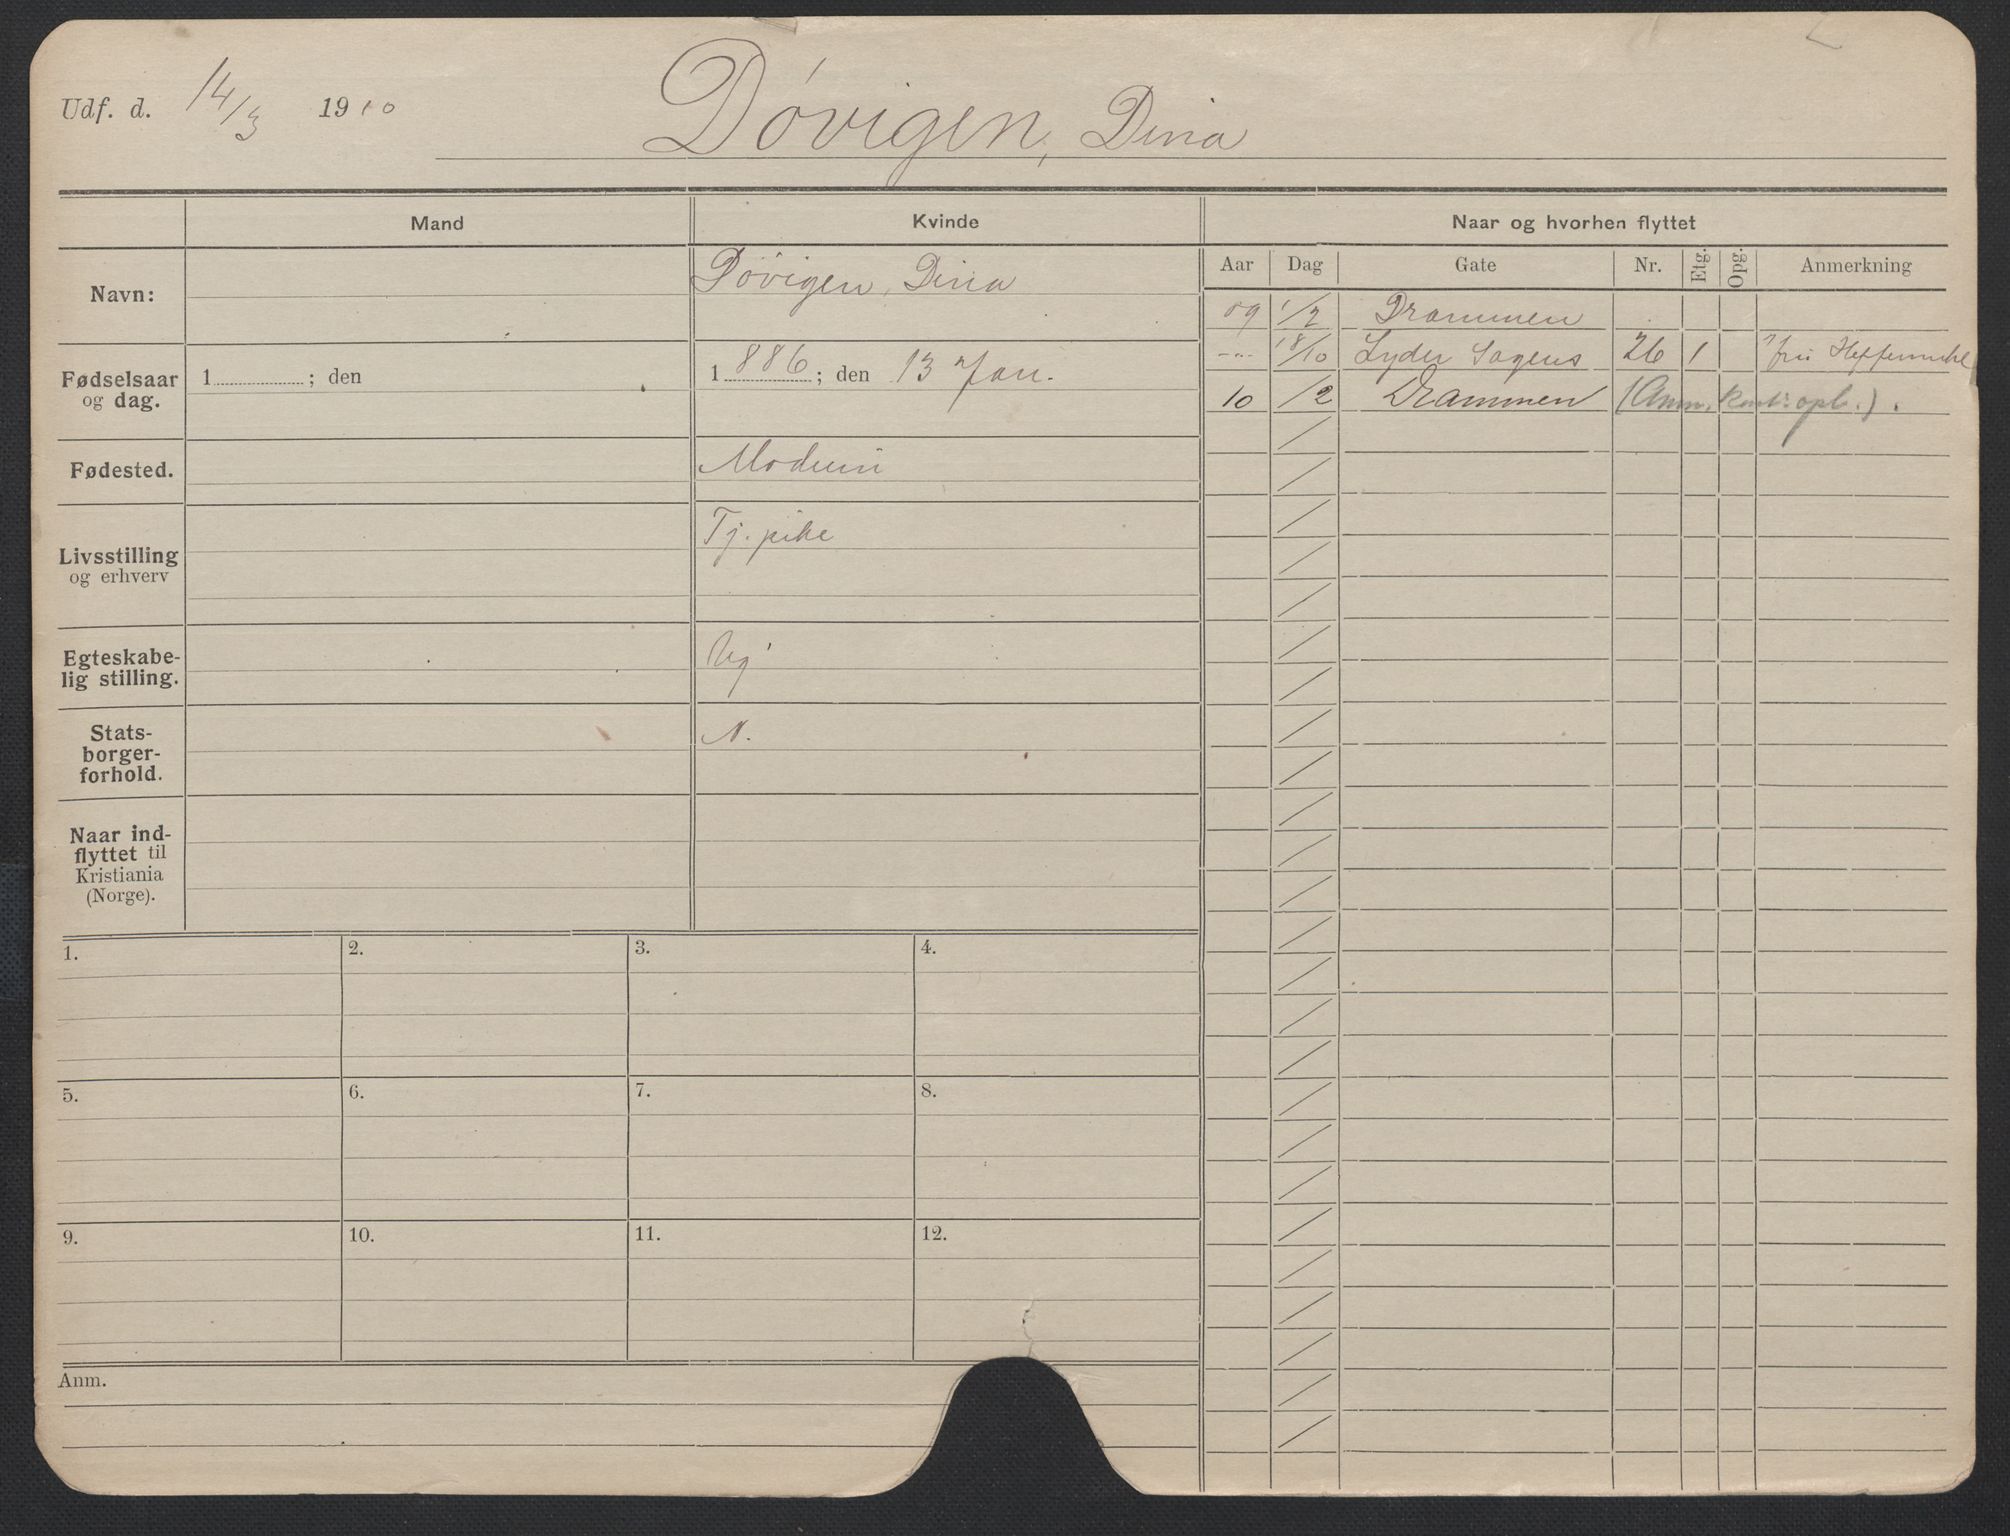 Udf. d. 14/3 1910 Døvigen, Dina
Mand
Kvinde
Naar og hvorhen flyttet
Aar Dag Gate Nr. Etg. Opg. Anmerkning
Navn:
Døvigen, Dina
Fødselsaar
og dag.
1 ; den
1886; den 13 Jan.
Fødested.
Modum
Livsstilling
og erhverv
Tj. pike
Egteskabe-
lig stilling.
Ug
Stats-
borger-
forhold.
N.
Naar ind-
flyttet til
Kristiania
(Norge).
09 1/2 Drammen
-"- 18/10 Lyder Sagens 26 1 fru
10 /2 Drammen (Anm. kont. opl.).
1.
2.
3.
4.
5.
6.
7.
8.
9.
10.
11.
12.
Anm.